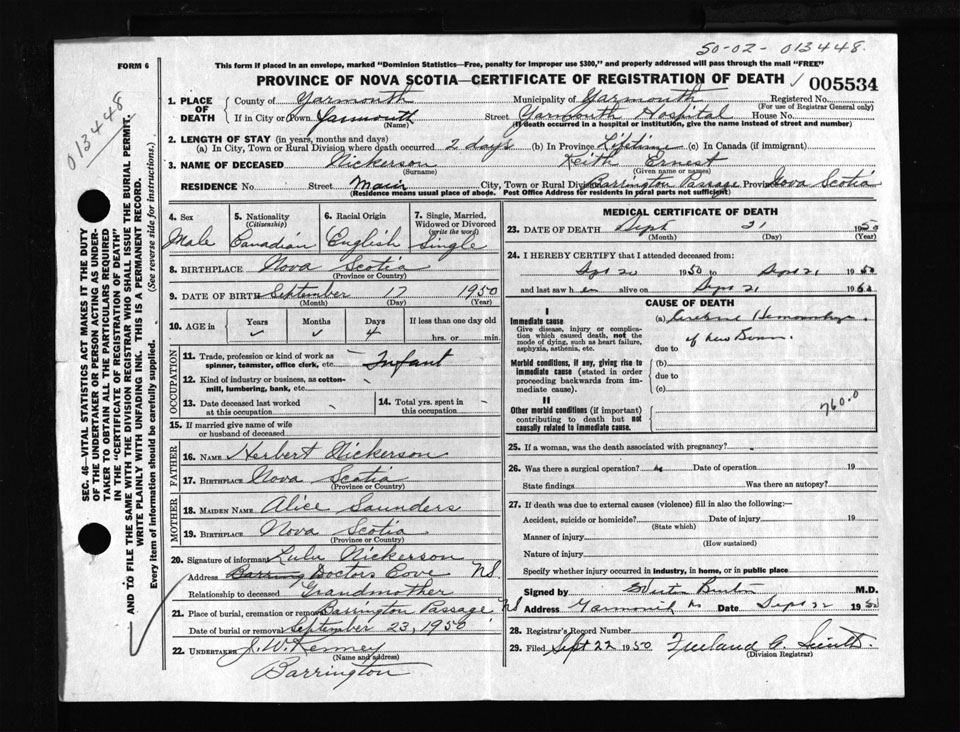 50-02- 013448.
FORM 6
This form if placed in an envelope, marked "Dominion Statistics—Free, penalty for improper use $300," and properly addressed will pass through the mail "FREE"
PROVINCE OF NOVA SCOTIA—CERTIFICATE OF REGISTRATION OF DEATH
005534
013448
SEC. 46—VITAL STATISTICS ACT MAKES IT THE DUTY
OF THE UNDERTAKER OR PERSON ACTING AS UNDER-
TAKER TO OBTAIN ALL THE PARTICULARS REQUIRED
IN THE "CERTIFICATE OF REGISTRATION OF DEATH"
AND TO FILE THE SAME WITH THE DIVISION REGISTRAR WHO SHALL ISSUE THE BURIAL PERMIT.
WRITE PLAINLY WITH UNFADING INK. THIS IS A PERMANENT RECORD.
Every item of information should be carefully supplied. (See reverse side for instructions.)
1. PLACE OF DEATH
County of Yarmouth Municipality of Yarmouth Registered No.
(For use of Registrar General only)
If in City or Town Yarmouth (Name) Street Yarmouth Hospital House No.
(If death occurred in a hospital or institution, give the name instead of street and number)
2. LENGTH OF STAY (in years, months and days)
(a) In City, Town or Rural Division where death occurred 2 days (b) In Province Lifetime (c) In Canada (if immigrant)
3. NAME OF DECEASED Nickerson Keith Ernest
(Surname) (Given name or names)
RESIDENCE No. Street Main City, Town or Rural Division Barrington Passage Province Nova Scotia
(Residence means usual place of abode. Post Office Address for residents in rural parts not sufficient)
4. Sex Male
5. Nationality (Citizenship) Canadian
6. Racial Origin English
7. Single, Married, Widowed or Divorced (write the word) Single
8. BIRTHPLACE Nova Scotia
(Province or Country)
9. DATE OF BIRTH September 17 1950
(Month) (Day) (Year)
10. AGE in Years Months Days 4 If less than one day old hrs. or min.
OCCUPATION
11. Trade, profession or kind of work as spinner, teamster, office clerk, etc. Infant
12. Kind of industry or business, as cotton-mill, lumbering, bank, etc.
13. Date deceased last worked at this occupation
14. Total yrs. spent in this occupation
15. If married give name of wife or husband of deceased
FATHER
16. NAME Herbert Nickerson
17. BIRTHPLACE Nova Scotia
(Province or Country)
MOTHER
18. MAIDEN NAME Alice Saunders
19. BIRTHPLACE Nova Scotia
(Province or Country)
20. Signature of informant Lulu Nickerson
Address Barring Doctors Cove NS.
Relationship to deceased Grandmother
21. Place of burial, cremation or removal Barrington Passage NS
Date of burial or removal September 23, 1950
22. UNDERTAKER J. W. Kenney
(Name and address)
Barrington
MEDICAL CERTIFICATE OF DEATH
23. DATE OF DEATH Sept 21 1950
(Month) (Day) (Year)
24. I HEREBY CERTIFY that I attended deceased from:
Sept 20 1950 to Sept 21 1950
and last saw h alive on Sept 21 1950
CAUSE OF DEATH
I
Immediate cause
Give disease, injury or complication which caused death, not the mode of dying, such as heart failure, asphyxia, asthenia, etc.
(a) Cerebral Hemorrhage
of New Born.
due to
Morbid conditions, if any, giving rise to immediate cause (stated in order proceeding backwards from immediate cause).
(b)
due to
(c)
II
Other morbid conditions (if important) contributing to death but not causally related to immediate cause.
760.0
25. If a woman, was the death associated with pregnancy?
26. Was there a surgical operation? Date of operation 19
State findings Was there an autopsy?
27. If death was due to external causes (violence) fill in also the following:—
Accident, suicide or homicide? Date of injury 19
(State which)
Manner of injury
(How sustained)
Nature of injury
Specify whether injury occurred in industry, in home, or in public place
Signed by M.D.
Address Yarmouth Date Sept 22 1950
28. Registrar's Record Number
29. Filed Sept 22 1950
(Division Registrar)